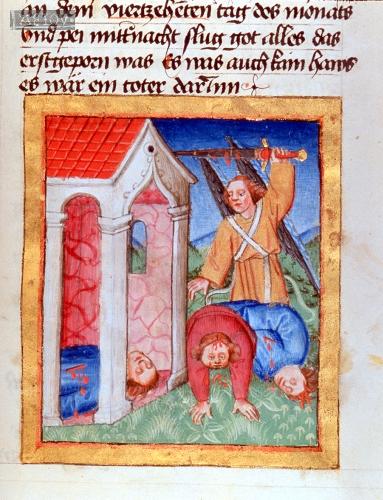 an dem viertzeheten tag des monats
und pei mitnacht slug got alles das
erstgeporn was es was auch kain haws
es wär ein toter darInn